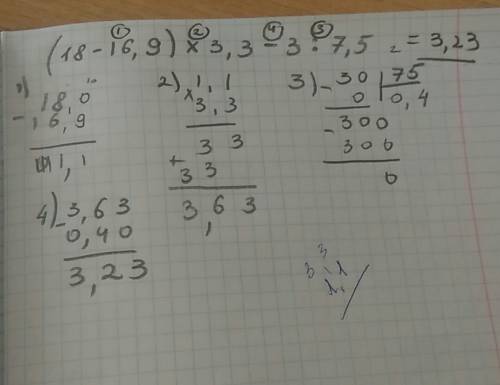 ① ② ④ ③
(18 - 16,9) × 3,3 - 3 : 7,5 = 3,23
1) 10
18,0
- 16,9
1,1
2) 1,1
× 3,3
3 3
+ 3 3
3,6 3
3) - 30 | 75
0 0,4
- 300
300
0
4) - 3,63
0,40
3,23